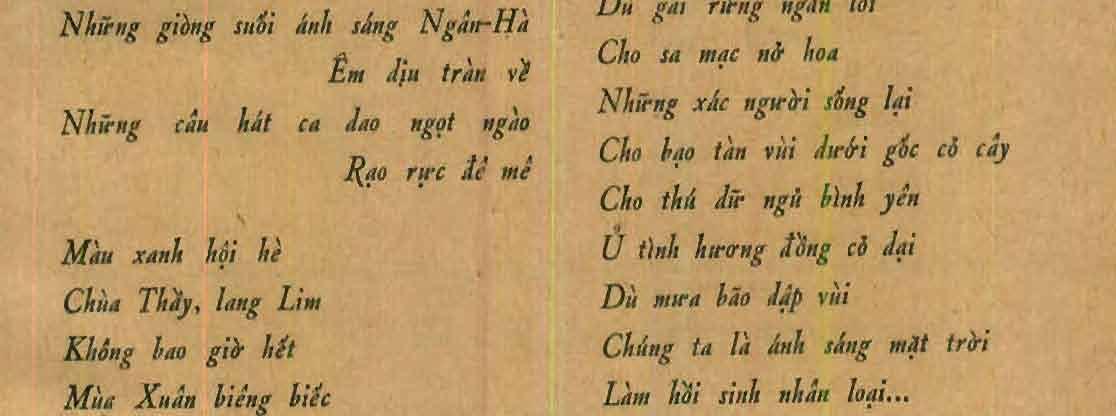 Những giòng suối ánh sáng Ngân-Hà
Êm dịu tràn về
Những câu hát ca dao ngọt ngào
Rạo rực đê mê
Màu xanh hội hè
Chùa Thầy, lang Lim
Không bao giờ hết
Mùa Xuân biêng biếc
Dù gai rừng ngăn lối
Cho sa mạc nở hoa
Những xác người sống lại
Cho bạo tàn vùi dưới gốc cỏ cây
Cho thú dữ ngủ bình yên
Ủ tình hương đồng cỏ dại
Dù mưa bão dập vùi
Chúng ta là ánh sáng mặt trời
Làm hồi sinh nhân loại...